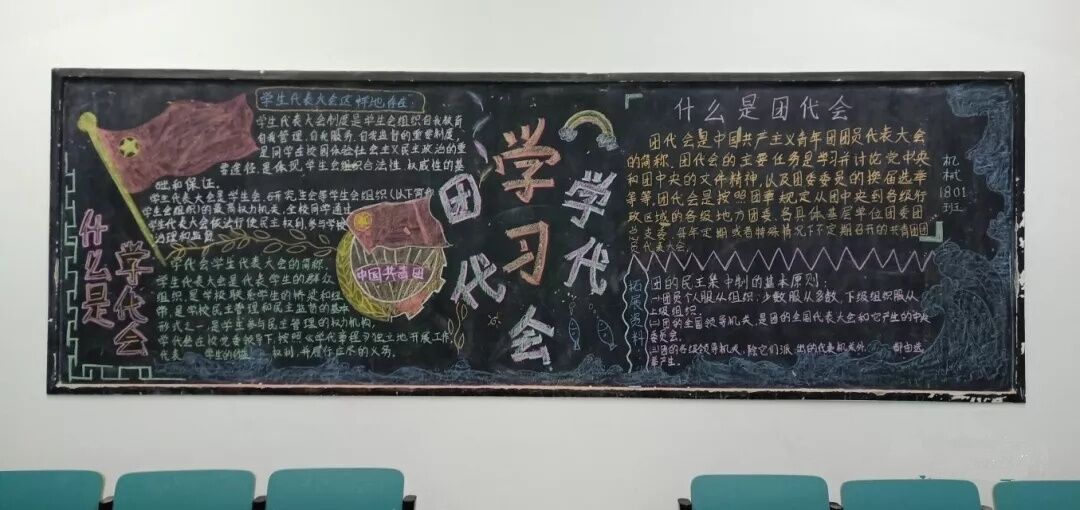 学生代表大会这样地存在:
学生代表大会制度是学生会组织自我教育
自我管理、自我服务、自我监督的重要制度,
是同学在校园体验社会主义民主政治的重
要途径,是体现,学生会组织合法性、权威性的基
础和保证。
学生代表大会是学生会、研究生会等学生会组织(以下简称
学生会组织)的最高权力机关,全校同学通过
学生代表大会依法行使民主权利,参与学校
治理和监督
什么是
学代会
学代会学生代表大会的简称,
学生代表大会是代表学生的群众
组织,是学校联系学生的桥梁和纽
带,是学校民主管理和民主监督的基本
形式之一,是学生参与民主管理的权力机构,
学代会在校党委领导下,按照《学代章程》独立地开展工作,
代表 学生的 权利,并履行应尽的义务。
中国共青团
团代
学习
学代
会
什么是团代会
团代会是中国共产主义青年团团员代表大会
的简称,团代会的主要任务是学习并讨论党中央
和团中央的文件精神,以及团委委员的换届选举
等等,团代会是按照团章规定从团中央到各级行
政区域的各级地方团委、各具体基层单位团委团
总支等,每年定期或者特殊情况下不定期召开的共青团团
员代表大会。
机械1801班
拓展资料
团的民主集中制的基本原则:
㈠团员个人服从组织,少数服从多数,下级组织服从
上级组织.
㈡团的全国领导机关,是团的全国代表大会和它产生的中央
委员会。
㈢团的各级领导机关,除它们派出的代表机关外, 都由选
举产生。